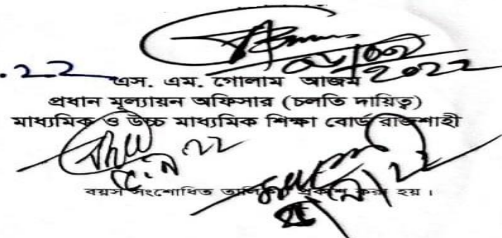 ২০২২
.২২
এস. এম. গোলাম আজম
প্রধান মূল্যায়ন অফিসার (চলতি দায়িত্ব)
মাধ্যমিক ও উচ্চ মাধ্যমিক শিক্ষা বোর্ড রাজশাহী
২২
২২
বয়স সংশোধিত তালিকা প্রকাশ করা হয়।